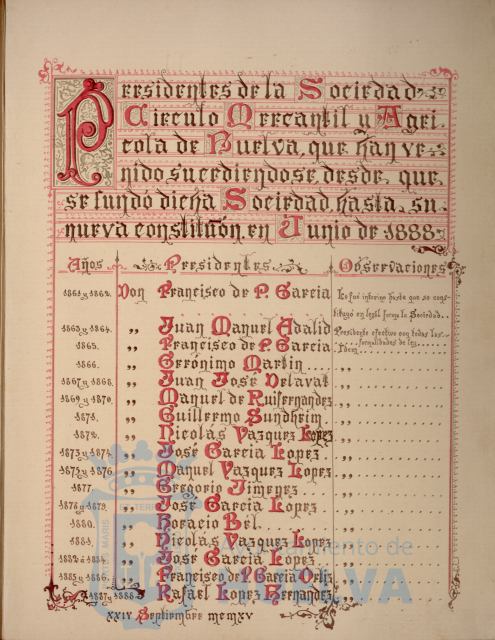 Presidentes de la Sociedad
Circulo Mercantil y Agri-
cola de Huelva, que han ve-
nido sucediendose, desde que
se fundó dicha Sociedad, hasta su
nueva constitución, en Junio de 1888.
Años Presidentes Observaciones
1861 y 1862. Don Francisco de P. Garcia Lo fué interino hasta que se cons-
tituyó en legal forma la Sociedad.
1863 y 1864. " Juan Manuel Adalid Presidente efectivo con todas las
formalidades de ley
1865. " Francisco de P. Garcia Idem
1866. " Gerónimo Martin "
1867 y 1868. " Juan José Delaval "
1869 y 1870. " Manuel de Ruifernandez "
1871. " Guillermo Sundheim "
1872. " Nicolás Vazquez Lopez "
1873 y 1874. " José Garcia Lopez "
1875 y 1876. " Manuel Vazquez Lopez "
1877. " Gregorio Jimenez "
1878 y 1879. " José Garcia Lopez "
1880. " Horacio Bel "
1881. " Nicolás Vazquez Lopez "
" José Garcia Lopez "
1885 y 1886. " Francisco de P. Garcia Ortiz "
1887 y 1888. " Rafael Lopez Hernandez "
XXIV Septiembre MCMXV
Ayuntamiento de
HUELVA